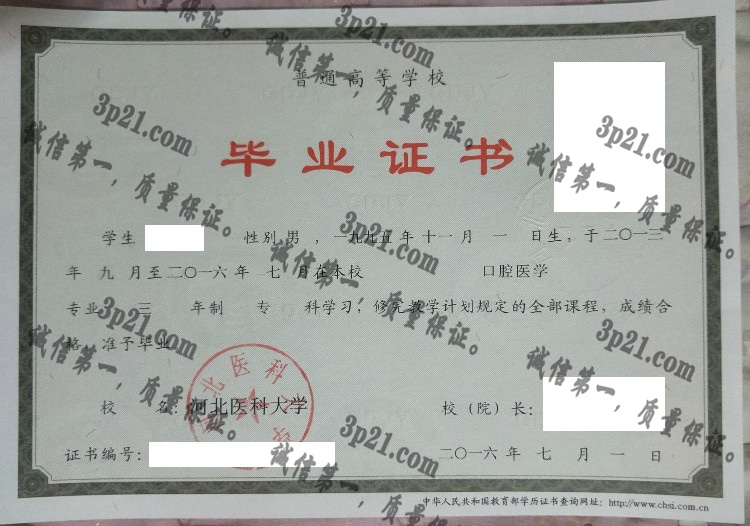 普通高等学校
毕业证书
学生 性别 男 ，一九九五年 十一月 一 日生，于二〇一三
年 九 月至二〇一六年 七 月在本校 口腔医学
专业 三 年制 专 科学习，修完教学计划规定的全部课程，成绩合
格，准予毕业。
校 名：河北医科大学 校（院）长：
证书编号： 二〇一六年 七 月 一 日
中华人民共和国教育部学历证书查询网址：http://www.chsi.com.cn
河北医科大学
3p21.com
诚信第一，质量保证。
3p21.com
诚信第一，质量保证。
3p21.com
诚信第一，质量保证。
3p21.com
诚信第一，质量保证。
3p21.com
诚信第一，质量保证。
3p21.com
诚信第一，质量保证。
3p21.com
诚信第一，质量保证。
3p21.com
诚信第一，质量保证。